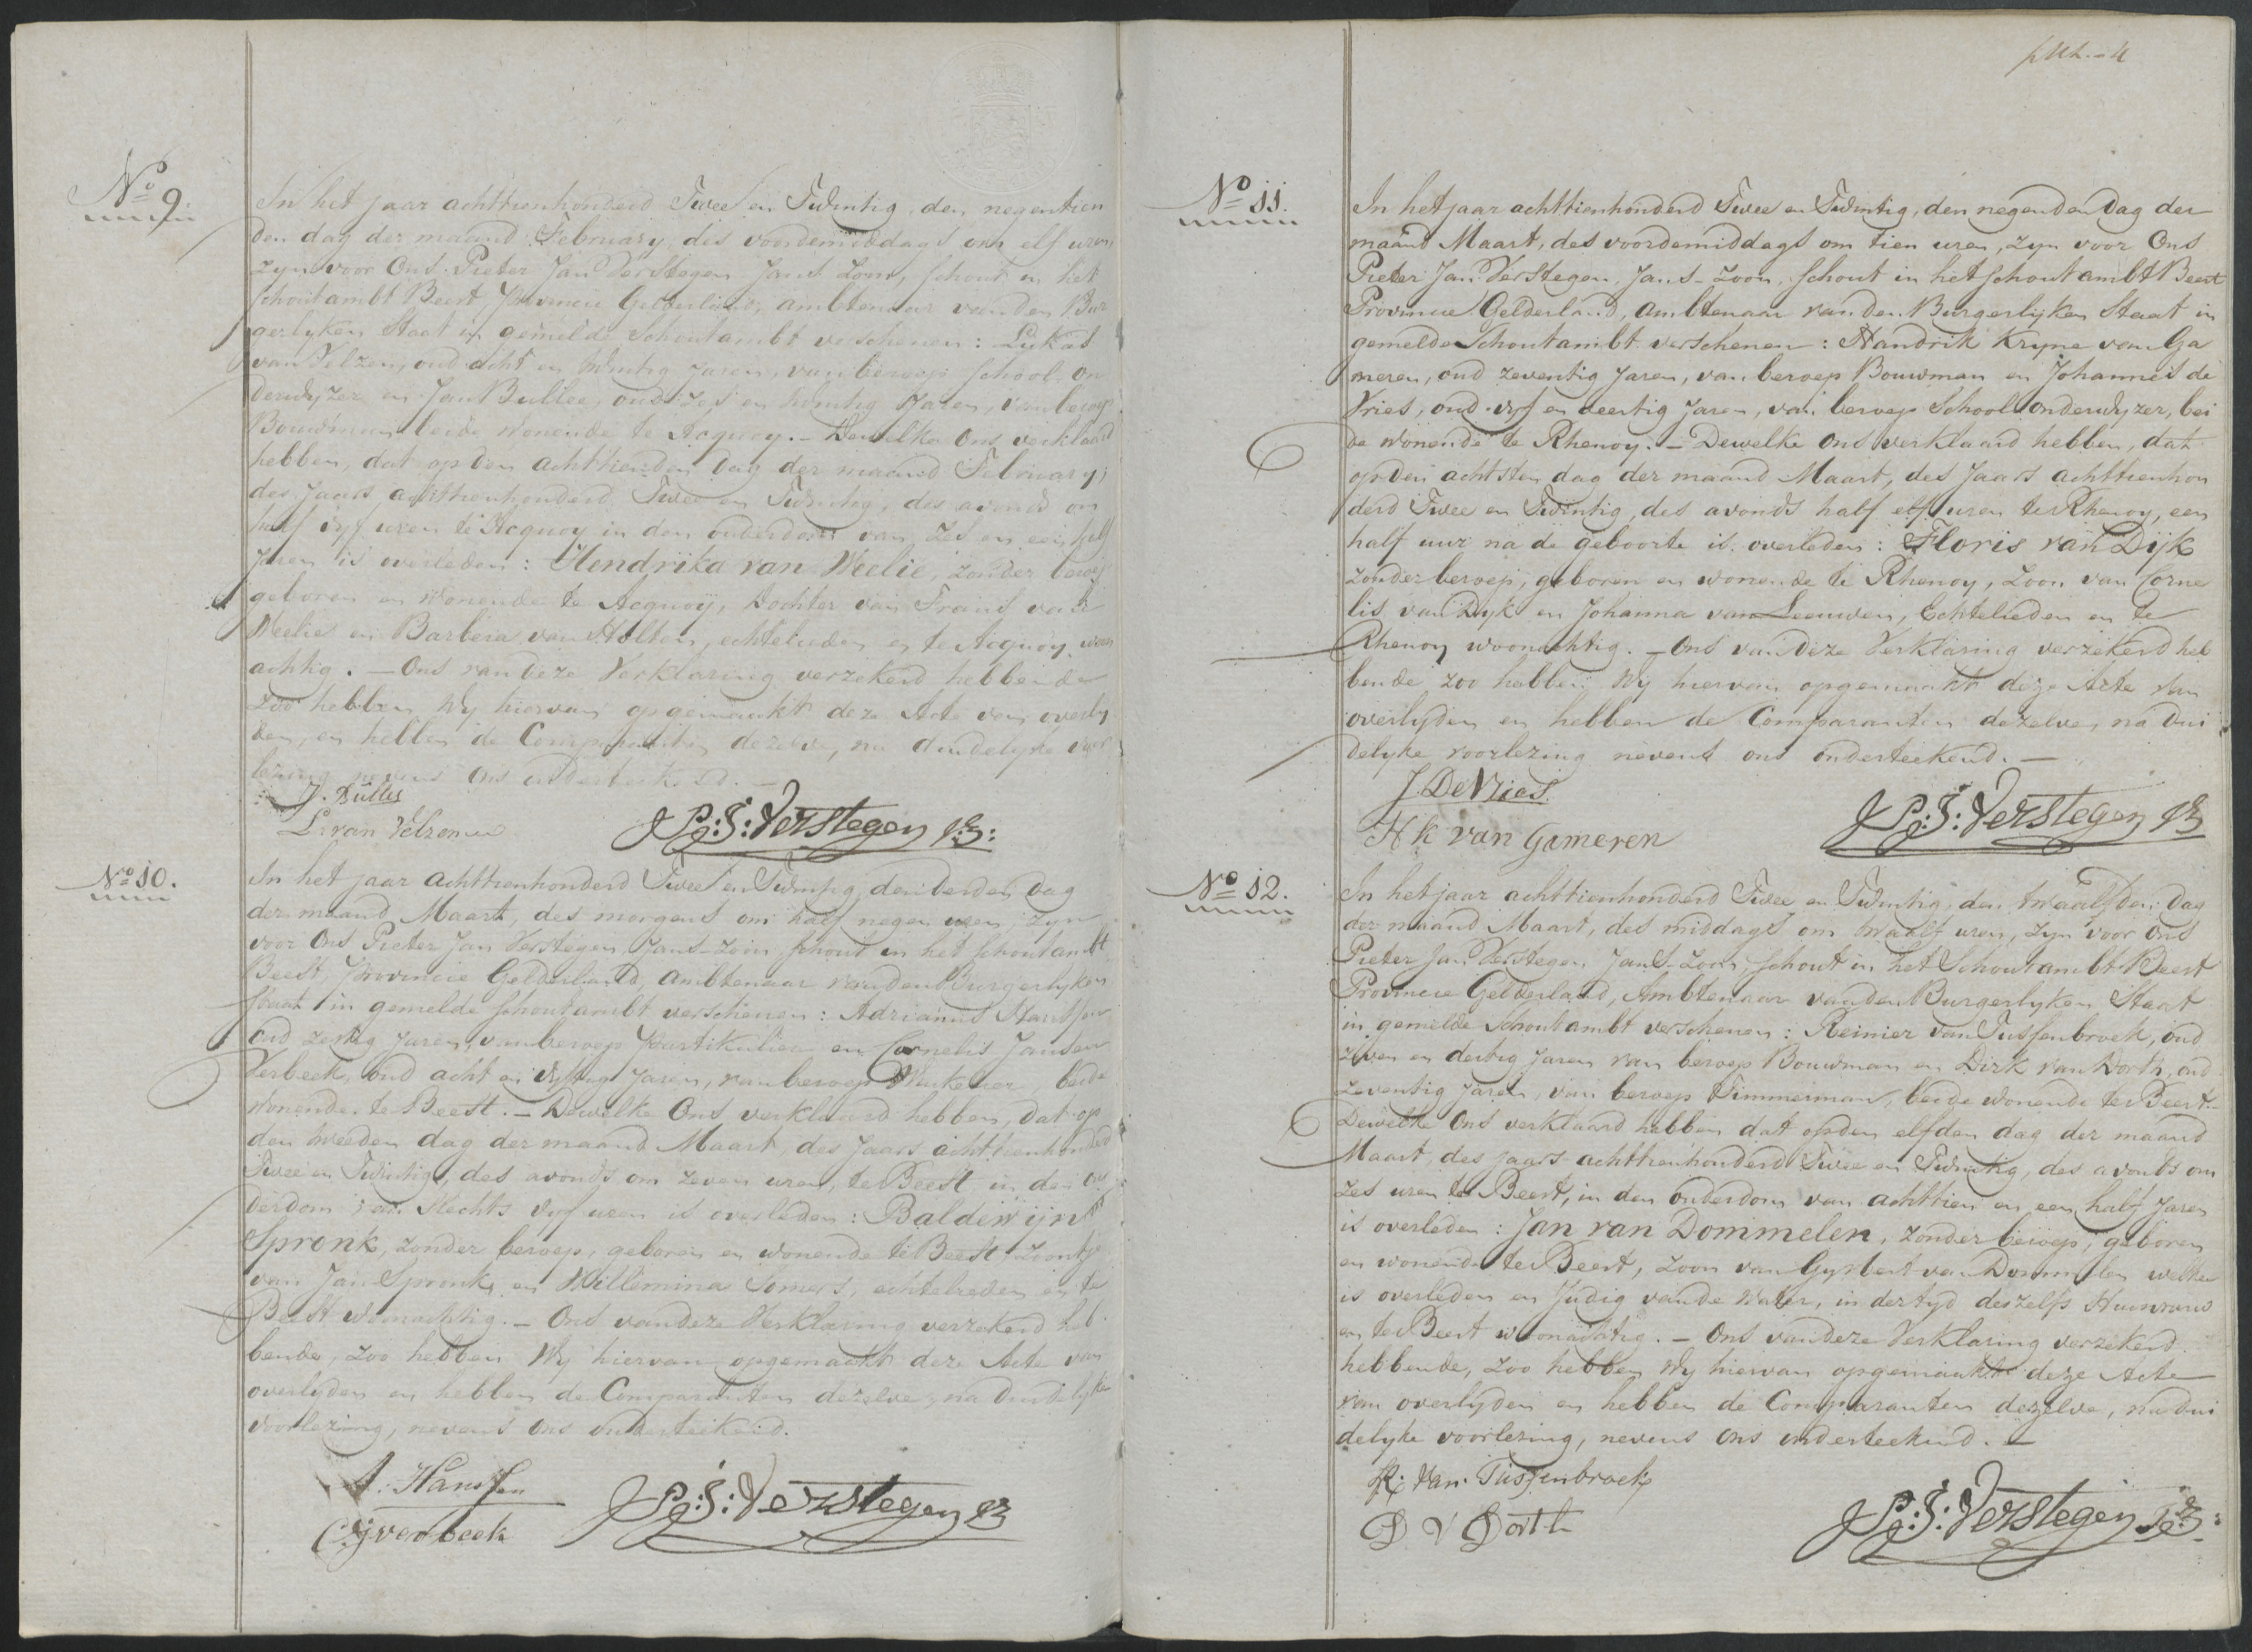 No 9.
In het jaar achttienhonderd Twee en Twintig, den negentien
den dag der maand February, des voordemiddags om elf uren,
zyn voor Ons Pieter Jan Verstegen Jans Zoon, Schout in het
Schoutambt Beest Provincie Gelderland, ambtenaar van den Bur
gerlyken Staat in gemelde Schoutambt verschenen: Lukas
van Velzen, oud acht en twintig Jaren, van beroep School on
derwyzer en Jan Bullee, oud zes en twintig Jaren, van beroep
Bouwman beide wonende te Acquoy. - Dewelke Ons verklaard
hebben, dat op den achttienden dag der maand February,
des Jaars achttienhonderd Twee en Twintig, des avonds om
half vyf uren te Acquoy in den ouderdom van zes en een half
Jaren is overleden: Hendrika van Weelie, zonder beroep
geboren en wonende te Acquoÿ, Dochter van Frans van
Weelie en Barbera van Holten, echtelieden en te Acquoy woon
achtig. - Ons van deze Verklaring verzekerd hebbende
zoo hebben Wy hiervan opgemaakt deze Acte van overly
den, en hebben de Comparanten dezelve, na duidelyke voor
lezing nevens Ons onderteekend. -
J. Bulleé
L. van Velzen
P:J: Verstegen JZ:
No 10.
In het jaar achttienhonderd Twee en Twintig, den derden Dag
der maand Maart, des morgens om half negen uren, zyn
voor Ons Pieter Jan Verstegen Jans-Zoon Schout in het Schoutambt
Beest, Provincie Gelderland, ambtenaar van den Burgerlyken
Staat in gemelde Schoutambt verschenen: Adrianus
oud zestig Jaren, van beroep Partikulier en Cornelis Jansen
Verbeek, oud acht en vyftig Jaren, van beroep Winkelier, beide
wonende te Beest. - Dewelke Ons verklaard hebben, dat op
den tweeden dag der maand Maart, des Jaars achttienhonderd
Twee en Twintig, des avonds om zeven uren, te Beest in den ou
derdom van slechts vyf uren is overleden: Baldewijn
Spronk, zonder beroep, geboren en wonende te Beest Zoontje
van Jan Spronk en Willemina Somers, echtelieden en te
Beest woonachtig. - Ons van deze Verklaring verzekerd heb
bende, zoo hebben Wy hiervan opgemaakt deze Acte van
overlyden en hebben de Comparanten dezelve, na duidelyke
voorlezing, nevens Ons onderteekend.
CJverbeek
P:J: Verstegen JZ
No 11.
In het jaar achttienhonderd Twee en Twintig, den negenden Dag der
maand Maart, des voordemiddags om tien uren, zyn voor Ons
Pieter Jan Verstegen, Jans-Zoon, Schout in het Schoutambt Beest
Provincie Gelderland, Ambtenaar van den Burgerlyken Staat in
gemelde Schoutambt verschenen: Handrik Kryne van Ga
meren, oud zeventig Jaren, van beroep Bouwman en Johannes de
Vries, oud vyf en deertig Jaren, van beroep School onderwyzer, bei
de wonende te Rhenoy. - Dewelke Ons verklaard hebben, dat
op den achtsten dag der maand Maart, des Jaars achttienhon
derd Twee en Twintig, des avonds half elf uren te Rhenoy, een
half uur na de geboorte is overleden: Floris van Dijk
zonder beroep, geboren en wonende te Rhenoy, Zoon van Corne
lis van Dyk en Johanna van Leeuwen, Echtelieden en te
Rhenoy woonachtig. - Ons van deze Verklaring verzekerd heb
bende zoo hebben Wij hiervan opgemaakt deze Acte van
overlyden en hebben de Comparanten dezelve, na dui
delyke voorlezing nevens ons onderteekend. -
J DeVries
H k van Gameren
P:J: Verstegen JZ
No 12.
In het jaar achttienhonderd Twee en Twintig, den twaalfden Dag
der maand Maart, des middags om twaalf uren, zyn voor Ons
Pieter Jan Verstegen Jans-Zoon, Schout in het Schoutambt Beest
Provincie Gelderland, Ambtenaar van den Burgerlyken Staat
in gemelde Schoutambt verschenen: Reinier van Tussenbroek, oud
zeven en dertig Jaren van beroep Bouwman en Dirk van Dorth, oud
zeventig Jaren, van beroep Timmerman, beide wonende te Beest. -
Dewelke Ons verklaard hebben dat op den elfden dag der maand
Maart, des jaars achttienhonderd Twee en Twintig, des avonds om
zes uren te Beest, in den ouderdom van achttien en een half Jaren
is overleden: Jan van Dommelen, zonder beroep, geboren
en wonende te Beest, Zoon van Gysbert van Dommelen welke
is overleden en Judig van de Water, in der tyd deszelfs Huisvrouw
en te Beest woonachtig. - Ons van deze Verklaring verzekerd
hebbende, zoo hebben Wy hiervan opgemaakt deze Acte
van overlyden en hebben de Comparanten dezelve, na dui
delyke voorlezing, nevens Ons onderteekend. -
R: van Tussenbroek
D V Dorth
P:J: Verstegen JZ: